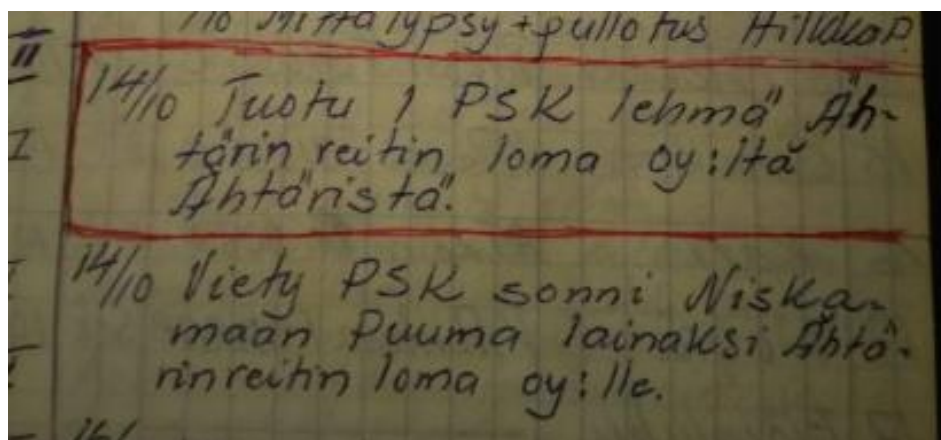 /10 Mittalypsy + pullotus Hilkka P.
II
14/10 Tuotu 1 PSK lehmä Äh-
I
tärin reitin loma oy:ltä
Ähtäristä.
14/10 Viety PSK sonni Niska-
maan Puuma lainaksi Ähtä-
rinreitin loma oy:lle.